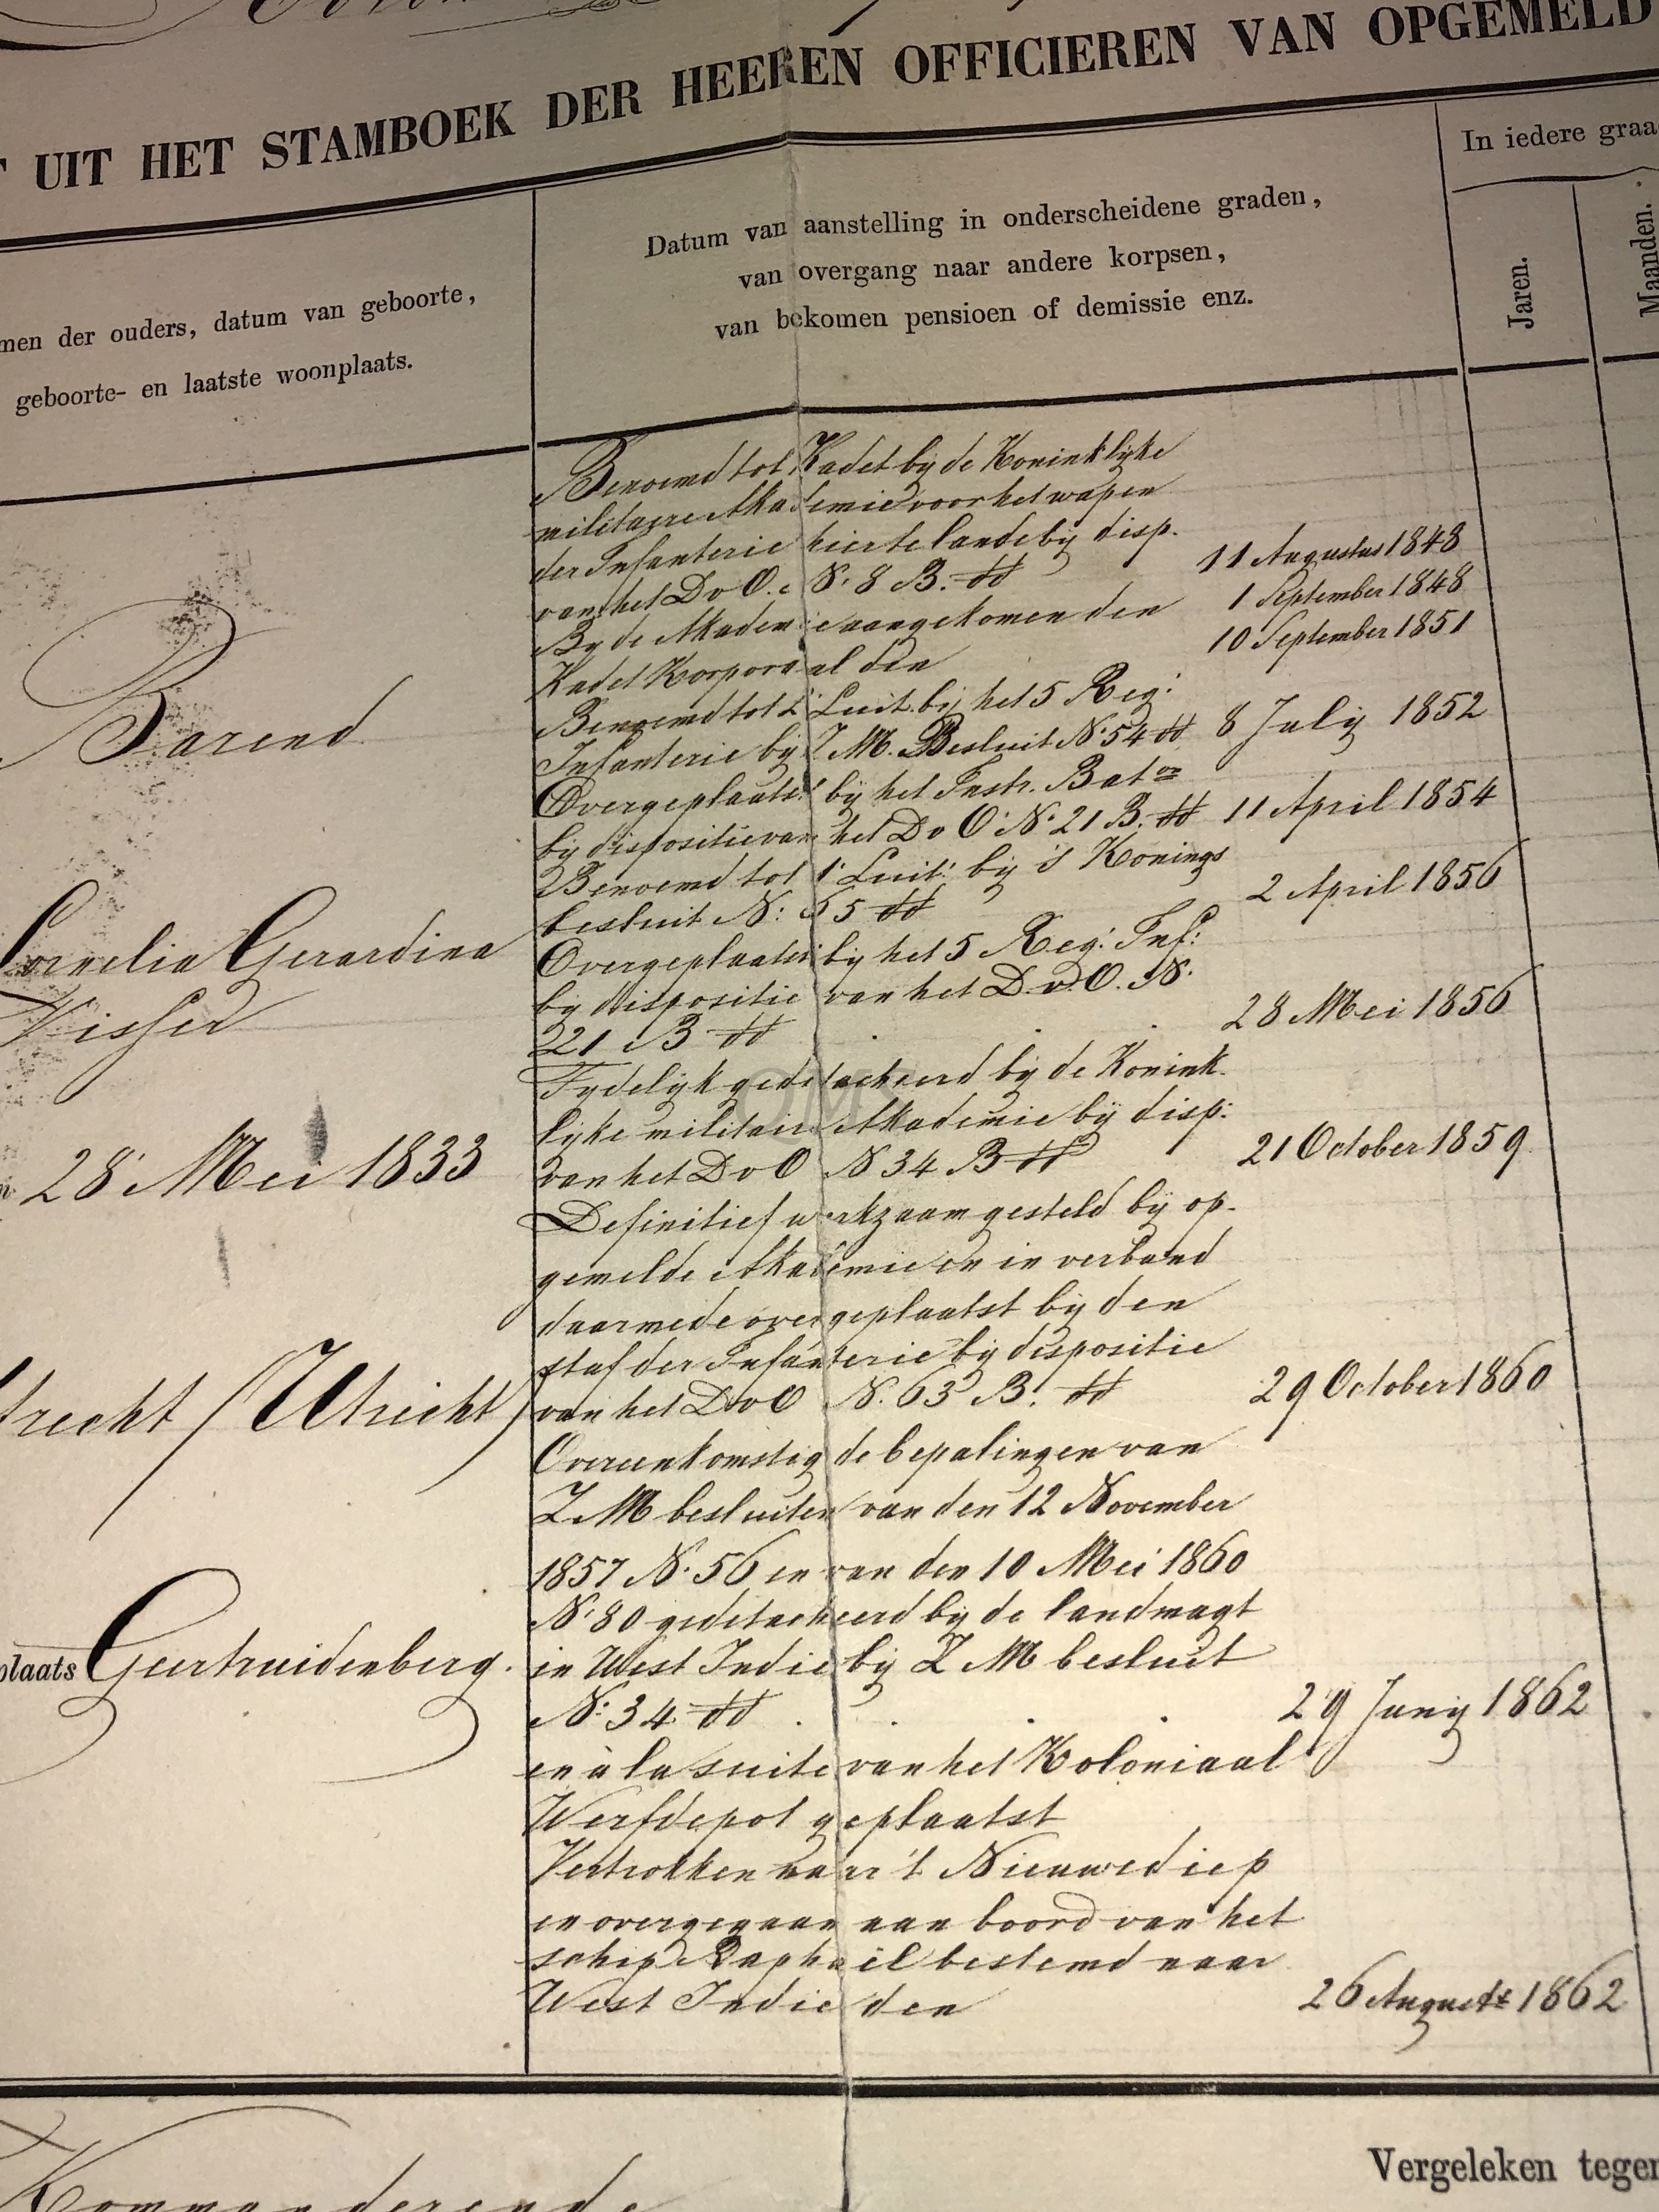 UIT HET STAMBOEK DER HEEREN OFFICIEREN VAN OPGEMELD
men der ouders, datum van geboorte,
geboorte- en laatste woonplaats.
Datum van aanstelling in onderscheidene graden,
van overgang naar andere korpsen,
van bekomen pensioen of demissie enz.
In iedere graa
Jaren.
Maanden.
Barend
Cornelia Gerardina
Visser
28 Mei 1833
trecht (Utrecht)
plaats Geertruidenberg.
Benoemd tot Kadet bij de Koninklijke
militaire Akademie voor het wapen
der Infanterie hier te lande bij disp.
van het D v O. N. 8 B. dd 11 Augustus 1848
By de Akademie aangekomen den 1 September 1848
Kadet Korporaal den 10 September 1851
Benoemd tot 2e Luit. bij het 5 Reg.
Infanterie bij Z M. Besluit No 54 dd 8 July 1852
Overgeplaatst bij het Instr. Baton
by dispositie van het D v O No 21 B. dd 11 April 1854
Benoemd tot 1e Luit. bij 's Konings
besluit N: 55 dd 2 April 1856
Overgeplaatst bij het 5 Reg. Inf:
by dispositie van het D. v. O. N.
221 B dd 28 Mei 1856
Tydelijk gedetacheerd bij de Konink-
lijke militaire Akademie bij disp:
van het D v O N 34 B dd 21 October 1859
Definitief werkzaam gesteld bij op-
gemelde Akademie en in verband
daarmede overgeplaatst bij den
staf der Infanterie bij dispositie
van het D v O N. 63 B. dd 29 October 1860
Overeenkomstig de bepalingen van
Z M besluiten van den 12 November
1857 N. 56 en van den 10 Mei 1860
N. 80 gedetacheerd bij de landmagt
in West Indie bij Z M besluit
N: 34 dd 29 Juny 1862
en à la suite van het Koloniaal
Werfdepot geplaatst
Vertrokken naar 't Nieuwediep
en overgegaan aan boord van het
schip Raphaël bestemd naar
West Indie den 26 Augusts 1862
Kommanderende
Vergeleken tegen